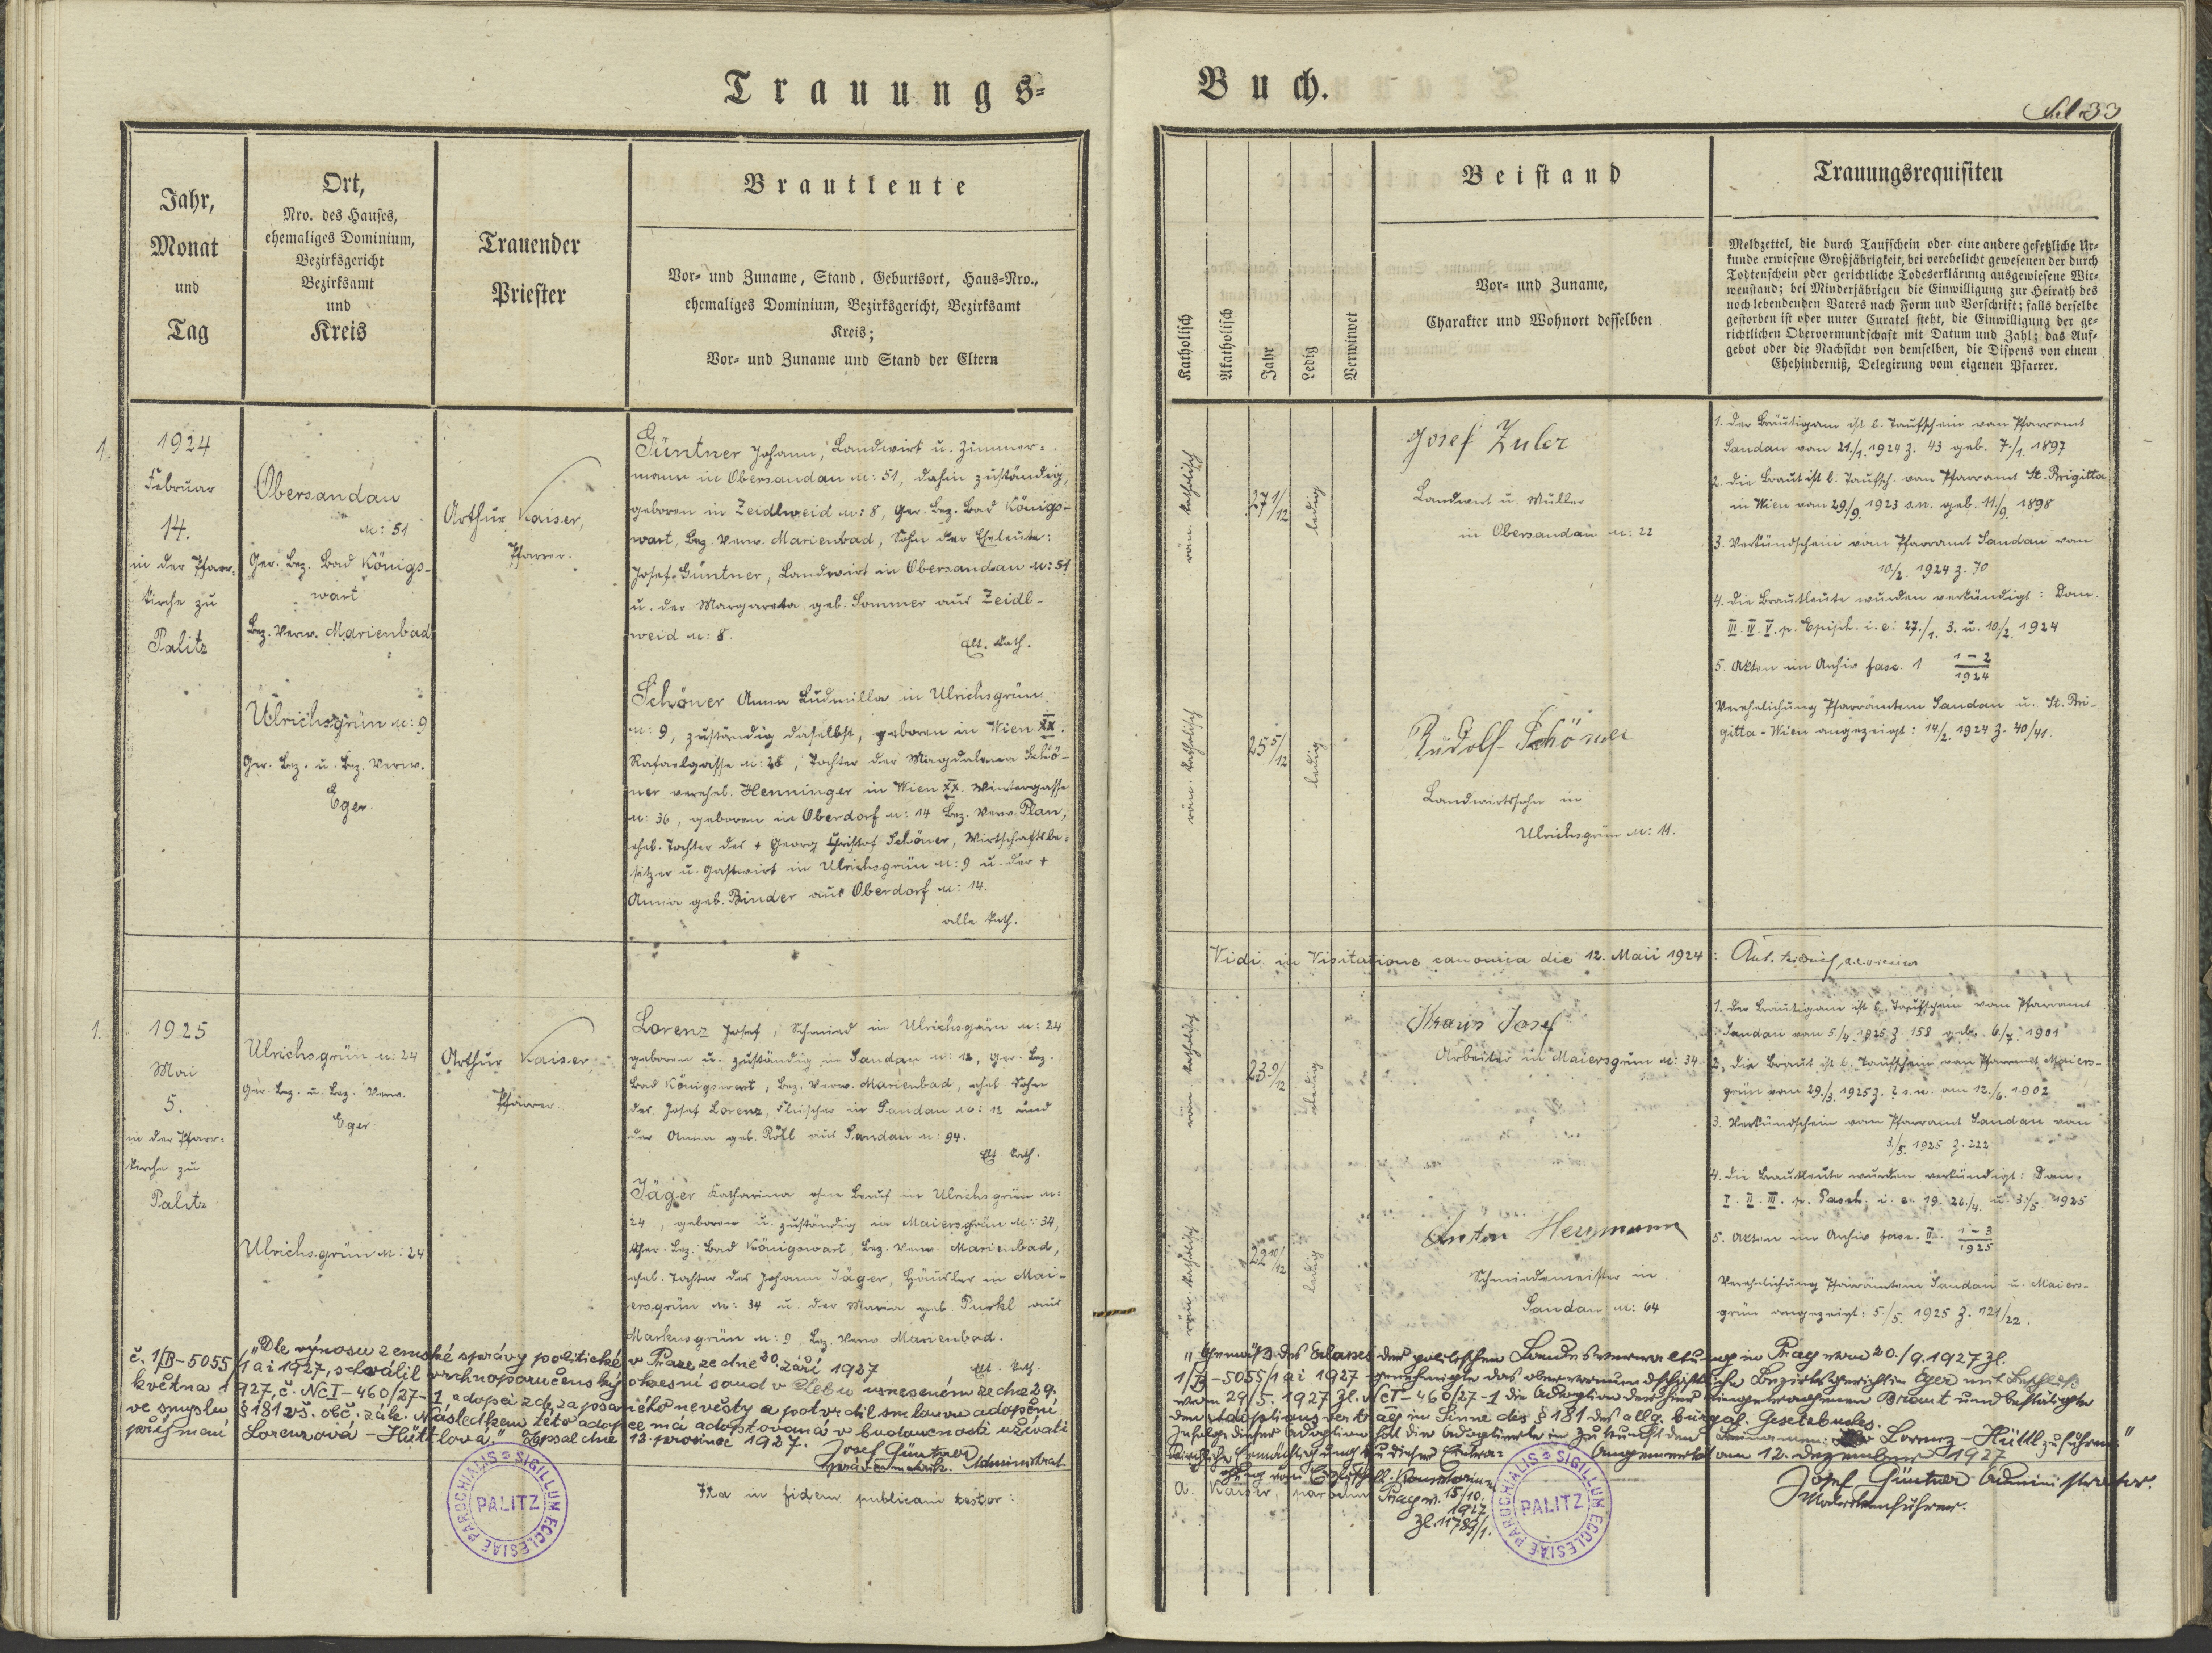 Trauungs-
Jahr,
Monat
und
Tag
Ort,
Nro. des Hauses,
ehemaliges Dominium,
Bezirksgericht
Bezirksamt
und
Kreis
Trauender
Priester
Brautleute
Vor- und Zuname, Stand, Geburtsort, Haus-Nro.,
ehemaliges Dominium, Bezirksgericht, Bezirksamt
Kreis;
Vor- und Zuname und Stand der Eltern
1.
1924
Februar
14.
in der Pfarr-
kirche zu
Palitz
Obersandau
N: 51
Ger. Bez. Bad Königs-
wart
Bez. Verw. Marienbad
Ulrichsgrün N: 9
Ger. Bez. u. Bez. Verw.
Eger.
Arthur Kaiser,
Pfarrer.
Güntner Johann, Landwirt u. Zimmer-
mann in Obersandau N: 51, dahin zuständig,
geboren in Zeidlweid N: 8, Ger. Bez. Bad Königs-
wart, Bez. Verw. Marienbad, Sohn der Eheleute:
Josef Güntner, Landwirt in Obersandau N: 51
u. der Margareta geb. Sommer aus Zeidl-
weid N: 8.
kath.
Schöner Anna Ludmilla in Ulrichsgrün
N: 9, zuständig daselbst, geboren in Wien XX.
Rafaelgasse N: , Tochter der Magdalena Schö-
ner verehel. Henninger in Wien XX. Wintergasse
N: 36, geboren in Oberdorf N: 14 Bez. Verw. Plan,
ehel. Tochter des + Georg Christof Schöner, Wirtschaftsbe-
sitzer u. Gastwirt in Ulrichsgrün N: 9 u. der +
Anna geb. Binder aus Oberdorf N: 14.
alle kath.
1.
1925
Mai
5.
in der Pfarr-
kirche zu
Palitz
Ulrichsgrün N: 24
Ger. Bez. u. Bez. Verw.
Eger
Ulrichsgrün N: 24
Arthur Kaiser
Pfarrer.
Lorenz Josef, Schmied in Ulrichsgrün N: 24
geboren u. zuständig in Sandau N: 12, Ger. Bez.
Bad Königswart, Bez. Verw. Marienbad, ehel. Sohn
des Josef Lorenz, Fleischer in Sandau N: 12 und
der Anna geb. Röll aus Sandau N: 94.
kath.
Jäger Katharina ohne Beruf in Ulrichsgrün N:
24, geboren u. zuständig in Maiersgrün N: 34,
Ger. Bez. Bad Königswart, Bez. Verw. Marienbad,
ehel. Tochter des Johann Jäger, Häusler in Mai-
ersgrün N: 34 u. der Maria geb. Purkl aus
Markusgrün N: 9 Bez. Verw. Marienbad.
kath.
"Dle výnosu zemské správy politické v Praze ze dne 20. září 1927
č. 1/B-5055/1 ai 1927, schválil vrchnoporučenský okresní soud v Chebu usnesením ze dne 29.
května 1927, č. Nc I-460/27-1 adopci zde zapsaného nevěsty a potvrdil smlouvu adopční
ve smyslu § 181 vš. obč. zák. Následkem této adopce má adoptovaná v budoucnosti užívati
příjmení Lorenzová-Hüttlová." Zapsal dne 12. prosince 1927.
Josef Güntner
Administrat.
Ita in fidem publicam testor:
SIGILLUM ECCLESIAE PAROCHIALIS
PALITZ
Buch.
Fol. 33
Katholisch
Akatholisch
Jahr
Ledig
Verwitwet
Beistand
Vor- und Zuname,
Charakter und Wohnort desselben
Trauungsrequisiten
Meldzettel, die durch Taufschein oder eine andere gesetzliche Ur-
kunde erwiesene Großjährigkeit, bei verehelicht gewesenen der durch
Todtenschein oder gerichtliche Todeserklärung ausgewiesene Wit-
wenstand; bei Minderjährigen die Einwilligung zur Heirath des
noch lebendenden Vaters nach Form und Vorschrift; falls derselbe
gestorben ist oder unter Curatel steht, die Einwilligung der ge-
richtlichen Obervormundschaft mit Datum und Zahl; das Auf-
gebot oder die Nachsicht von demselben, die Dispens von einem
Ehehinderniß, Delegirung vom eigenen Pfarrer.
röm. katholisch
27 1/12
ledig
Josef Zuler
Landwirt u. Müller
in Obersandau N: 22
1. Der Bräutigam ist l. Taufschein vom Pfarramt
Sandau vom 21./1. 1924 Z. 43 geb. 7./1. 1897
2. Die Braut ist l. Taufsch. vom Pfarramt St. Brigitta
in Wien vom 29./9. 1923 s.n. geb. 11./9. 1898
3. Verkündschein vom Pfarramt Sandau vom
10./2. 1924 Z. 70
4. Die Brautleute wurden verkündigt: Dom.
III. IV. V. p. Epiph. i.e: 27./1. 3. u. 10./2. 1924
5. Akten im Archiv fasc. 1 1-2/1924
Verehelichung Pfarrämtern Sandau u. St. Bri-
gitta-Wien angezeigt: 14/2. 1924 Z. 40/41.
röm. katholisch
25 5/12
ledig
Rudolf Schöner
Landwirtssohn in
Ulrichsgrün N: 11.
Vidi in Visitatione canonica die 12. Maii 1924:
röm. katholisch
23 9/12
ledig
Kraus Josef
Arbeiter in Maiersgrün N: 34
1. Der Bräutigam ist l. Taufschein vom Pfarramt
Sandau vom 5/4. 1925 Z. 158 geb. 6/7. 1901
2. Die Braut ist l. Taufschein vom Pfarramt Maiers-
grün vom 29./3. 1925 Z. s.n. am 12./6. 1902
3. Verkündschein vom Pfarramt Sandau vom
3./5. 1925 Z. 222
4. Die Brautleute wurden verkündigt: Dom.
I. II. III. p. Pasch. i. e. 19. 26./4. u. 3./5. 1925
5. Akten im Archiv fasc. II. 1-3/1925
Verehelichung Pfarrämtern Sandau u. Maiers-
grün angezeigt: 5./5. 1925 Z. 121/22.
röm. katholisch
22 10/12
ledig
Anton Herrmann
Schmiedemeister in
Sandau N: 64
"Gemäß des Erlasses der politischen Landesverwaltung in Prag vom 20./9. 1927 Zl.
1/B-5055/1 ai 1927 genehmigte das obervormundschaftliche Bezirksgericht in Eger mit Beschluß
vom 29/5. 1927 Zl. Nc I-460/27-1 die Adoption der hier eingetragenen Braut und bestätigte
den Adoptionsvertrag im Sinne des § 181 des allg. bürgl. Gesetzbuches.
Zufolge dieser Adoption hat die Adoptierte in Zukunft den Zunamen: Lorenz-Hüttl zu führen."
Angemerkt am 12. Dezember 1927
Josef Güntner Administrator.
Matrikenführer.
A. Kaiser, parochus
Prag v. 15/10.
1927
Zl. 11789/1.
SIGILLUM ECCLESIAE PAROCHIALIS
PALITZ